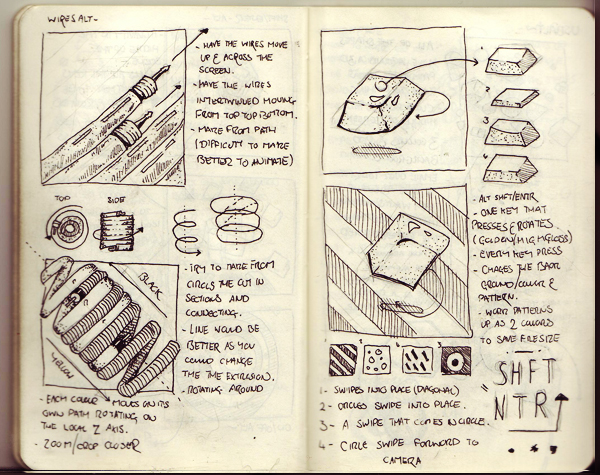 WIRES ALT-
- HAVE THE WIRES MOVE
UP & ACROSS THE
SCREEN.
- HAVE THE WIRES
INTERTWINED MOVING
FROM TOP TOP BOTTOM.
- MAKE FROM PATH
(DIFFICULT TO MAKE
BETTER TO ANIMATE)
TOP
SIDE
BLACK
YELLOW
- TRY TO MAKE FROM
CIRCLES THE CUT IN
SECTIONS AND
CONNECTING.
- LINE WOULD BE
BETTER AS YOU
COULD CHANGE
THE THE EXTRUSION.
- ROTATING AROUND
- EACH COLOUR MOVES ON ITS
OWN PATH ROTATING ON
THE LOCAL Z AXIS.
- ZOOM/CROP CLOSER
1
2
3
4
- ALT SHFT/ENTR
- ONE KEY THAT
PRESSES & ROTATES
(GOLDEN/HIGH GLOSS)
- EVERY KEY PRESS
- CHAGES THE BACK
GROUND/COLOUR &
PATTERN.
- WORK PATTERNS
UP AS 2 COLOURS
TO SAVE FILESIZE
1 - SWIPES INTO PLACE (DIAGONAL)
2 - CIRCLES SWIPE INTO PLACE.
3 - A SWIPE THAT COMES IN CIRCLE.
4 - CIRCLE SWIPE FORWARD TO
CAMERA
SHFT
NTR